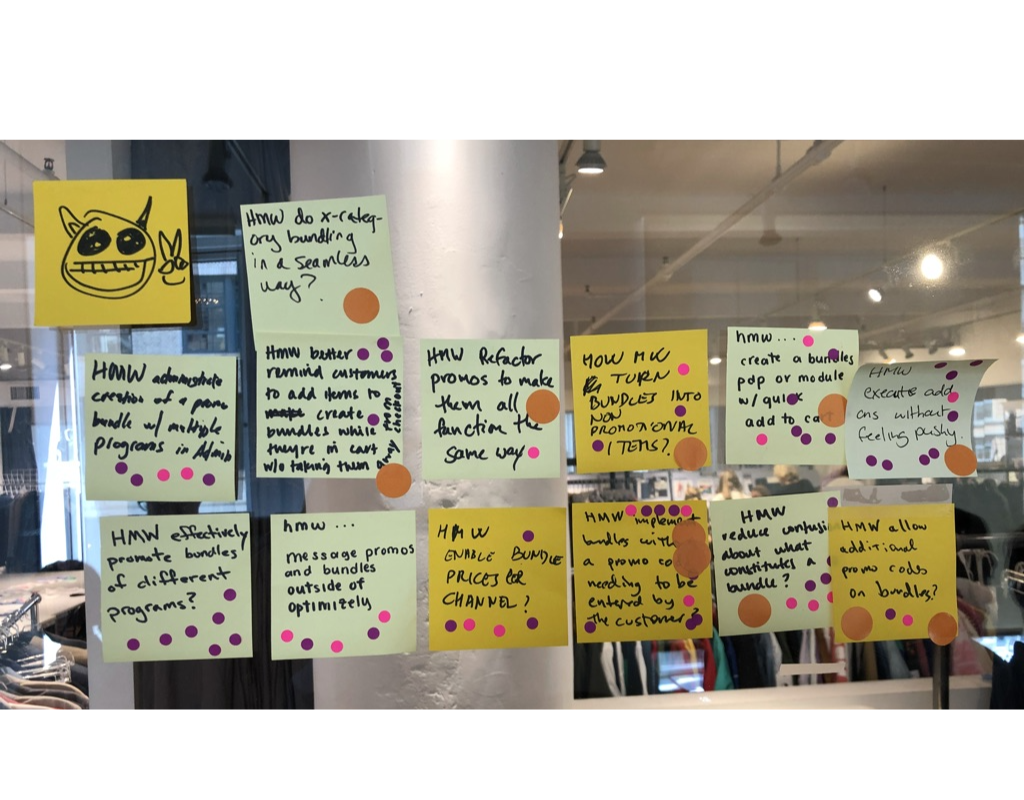 HMW do x-categ-
ory bundling
in a seamless
way?
HMW administrate
creation of a promo
bundle w/ multiple
programs in Admin
HMW better
remind customers
to add items to
create
bundles while
they're in cart
w/o taking them
away from checkout
HMW Refactor
promos to make
them all
function the
same way
HOW MW
TURN
BUNDLES INTO
NON
PROMOTIONAL
ITEMS?
hmw...
create a bundles
pdp or module
w/ quick
add to cart
HMW
execute add
ons without
feeling pushy.
HMW effectively
promote bundles
of different
programs?
hmw ...
message promos
and bundles
outside of
optimizely
HMW
ENABLE BUNDLE
PRICES PER
CHANNEL?
HMW implement
bundles with
a promo
needing to be
entered by
the customer?
HMW
reduce confusion
about what
constitutes a
bundle?
HMW allow
additional
promo codes
on bundles?